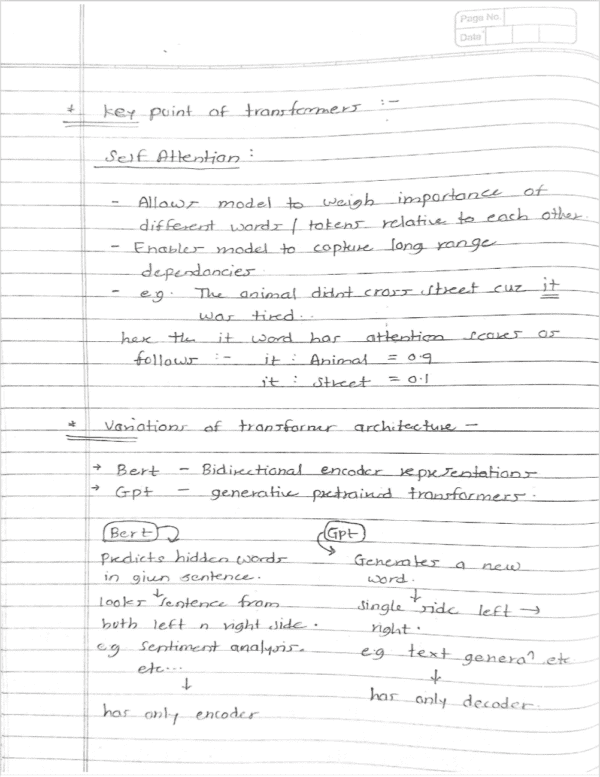 Page No.
Date
* Key point of transformers :-
Self Attention :
- Allows model to weigh importance of
different words / tokens relative to each other.
- Enables model to capture long range
dependancies.
- e.g. The animal didnt cross street cuz it
was tired..
here the it word has attention scores as
follows :- it : Animal = 0.9
it : Street = 0.1
* Variations of transformer architecture -
→ Bert - Bidirectional encoder representations
→ Gpt - generative pretrained transformers.
Bert
Predicts hidden words
in given sentence.
↓
looks sentence from
both left n right side.
e.g sentiment analysis.
etc...
↓
has only encoder
Gpt
Generates a new
word.
↓
single side left →
right.
e.g text generaⁿ etc
↓
has only decoder.